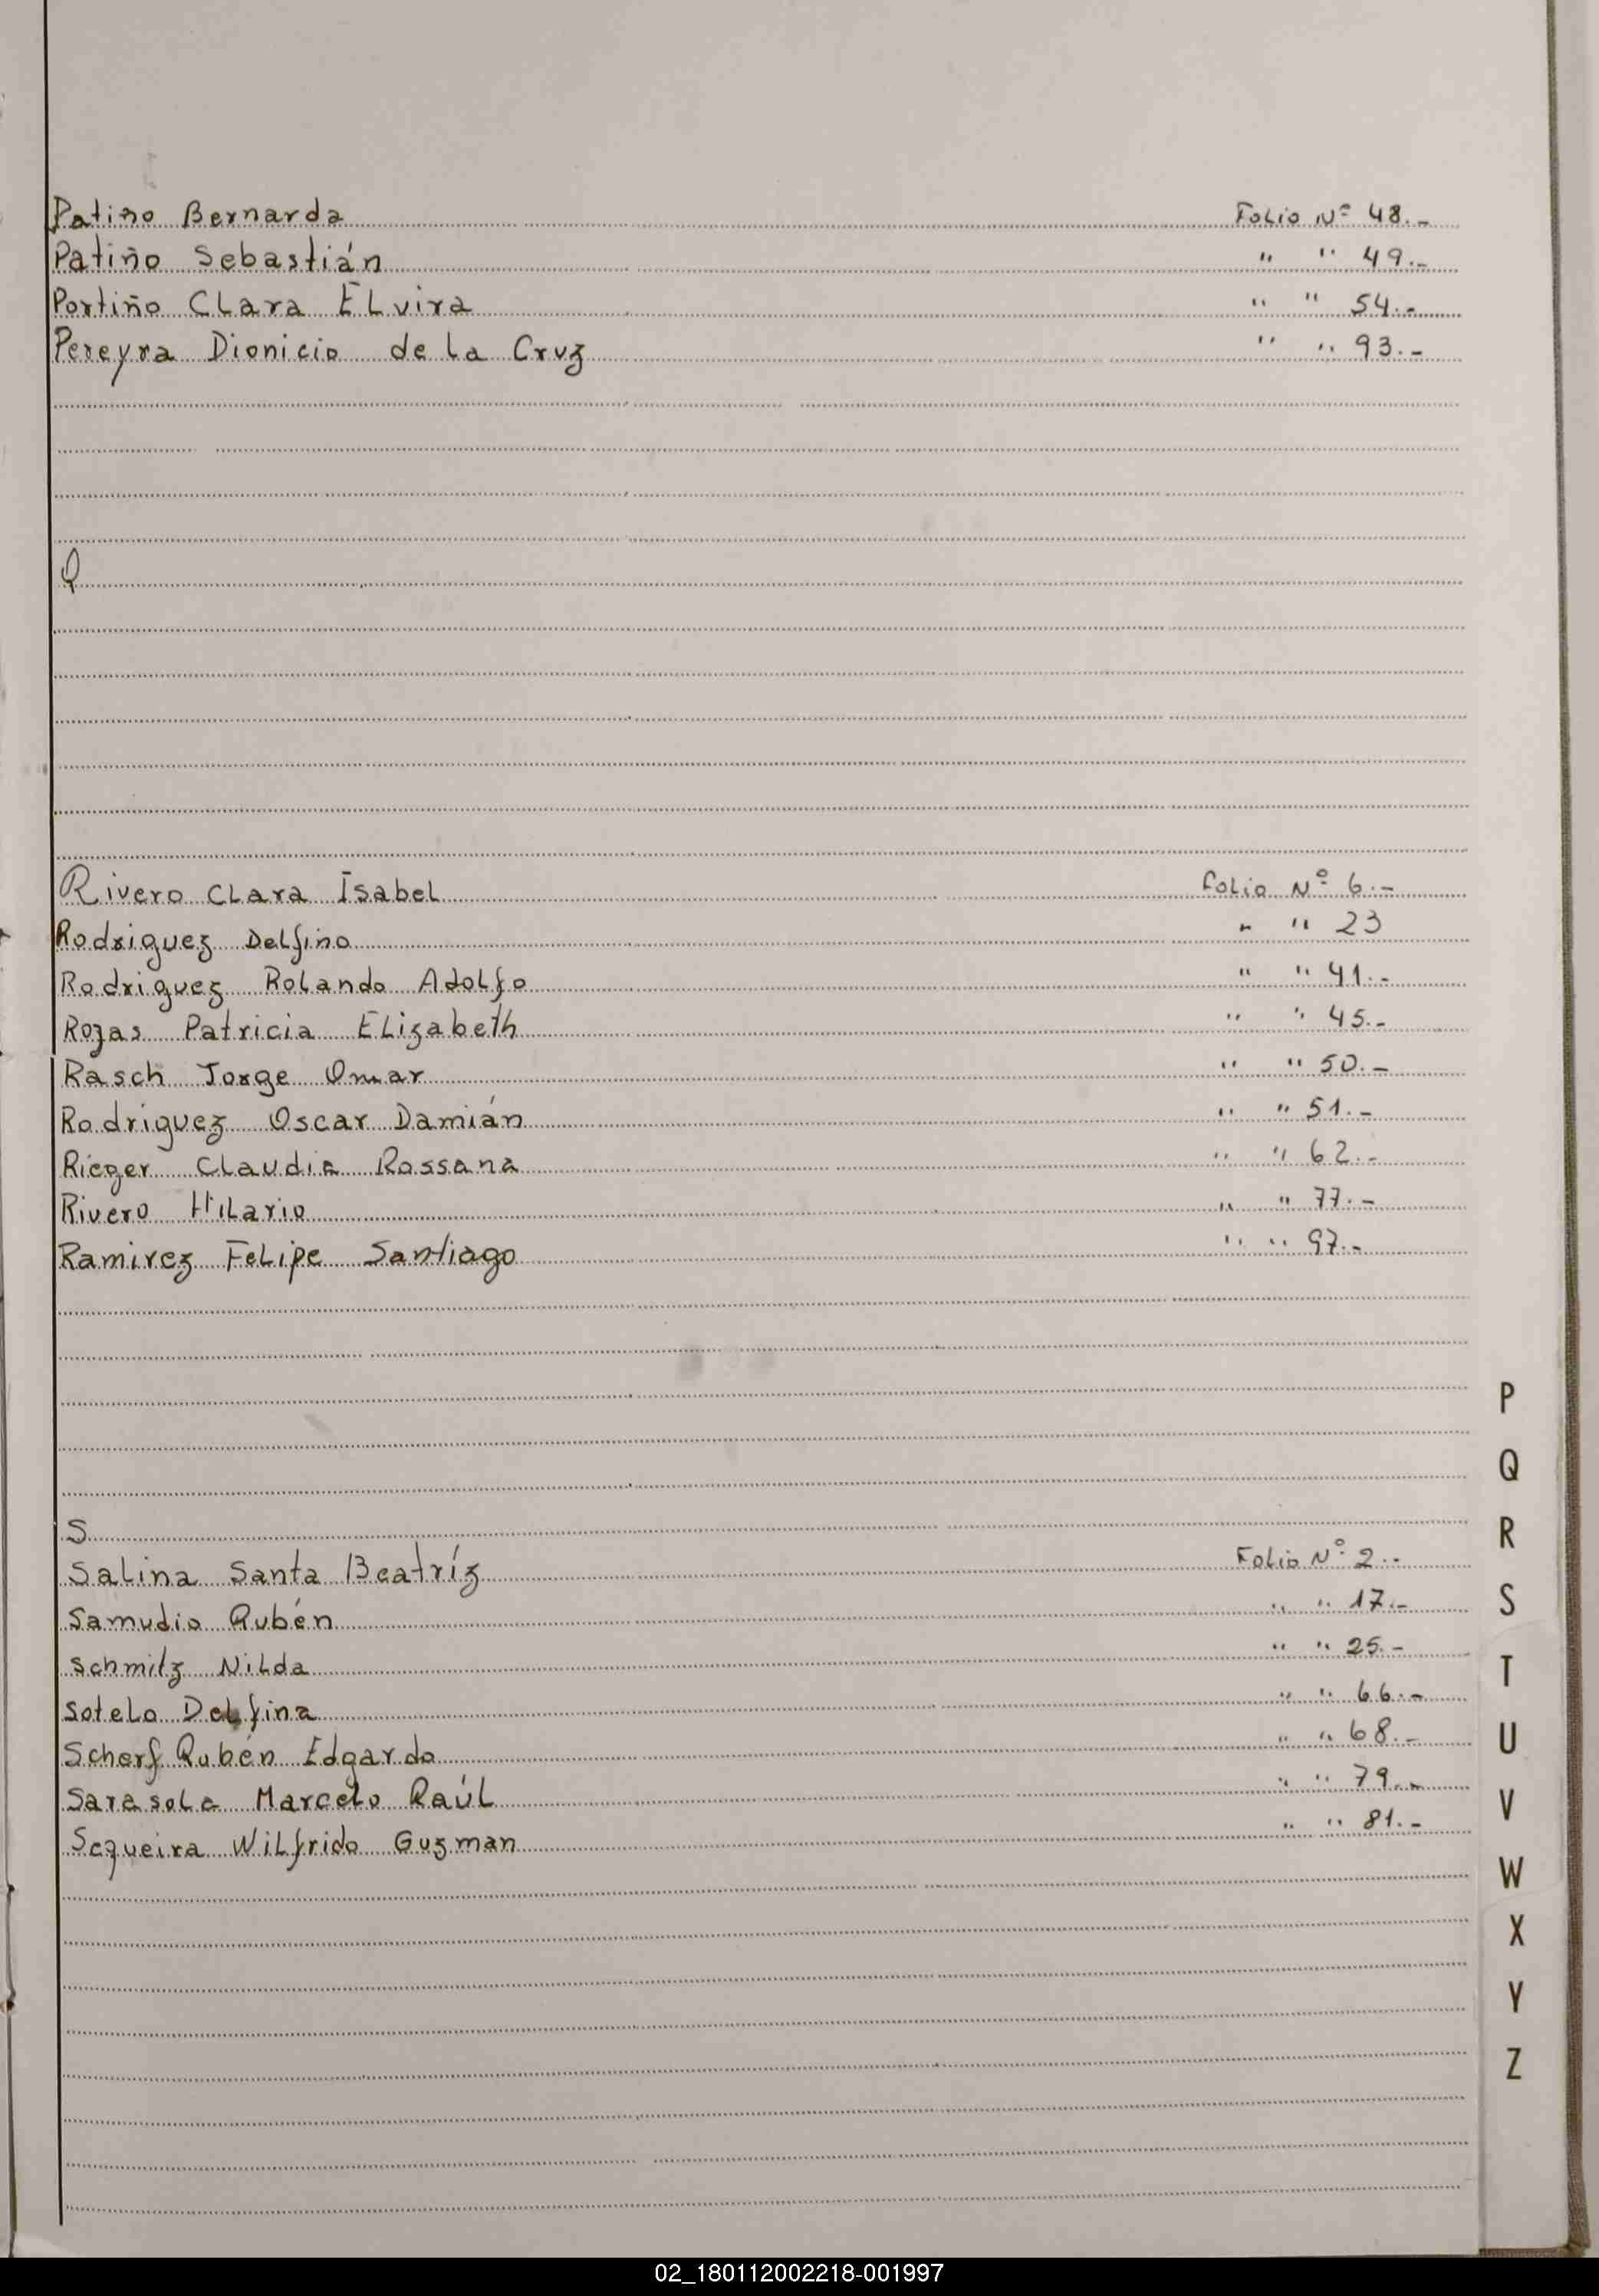 Patiño Bernarda Folio Nº 48.-
Patiño Sebastián " " 49.-
Portiño Clara Elvira " " 54.-
Pereyra Dionicio de la Cruz " " 93.-
Q
Rivero Clara Isabel Folio Nº 6.-
Rodriguez Delfino " " 23
Rodriguez Rolando Adolfo " " 41.-
Rojas Patricia Elizabeth " " 45.-
Rasch Jorge Omar " " 50.-
Rodriguez Oscar Damián " " 51.-
Rieger Claudia Rossana " " 62.-
Rivero Hilario " " 77.-
Ramirez Felipe Santiago " " 97.-
S
Salina Santa Beatríz Folio Nº 2.-
Samudio Rubén " " 17.-
Schmitz Nilda " " 25.-
Sotelo Delfina " " 66.-
Scherf Rubén Edgardo " " 68.-
Sarasola Marcelo Raúl " " 79.-
Sequeira Wilfrido Guzman " " 81.-
P
Q
R
S
T
U
V
W
X
Y
Z
02_180112002218-001997